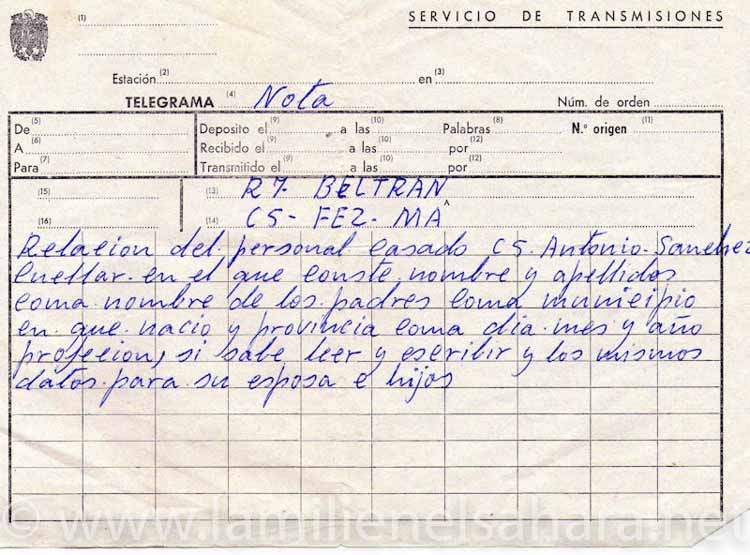 (1)
SERVICIO DE TRANSMISIONES
Estación (2) en (3)
TELEGRAMA (4) Nota Núm. de orden
De (5) Deposito el (9) a las (10) Palabras (8) N.º origen (11)
A (6) Recibido el (9) a las (10) por (12)
Para (7) Transmitido el (9) a las (10) por (12)
(15) (13) R7. BELTRAN
(16) (14) CS-FEZ-MA
Relacion del personal casado CS. Antonio Sanchez
Cuellar en el que conste nombre y apellidos
coma nombre de los padres coma municipio
en que nacio y provincia coma dia mes y año
profecion, si sabe leer y escribir y los mismos
datos para su esposa e hijos
© www.lamilienelsahara.net